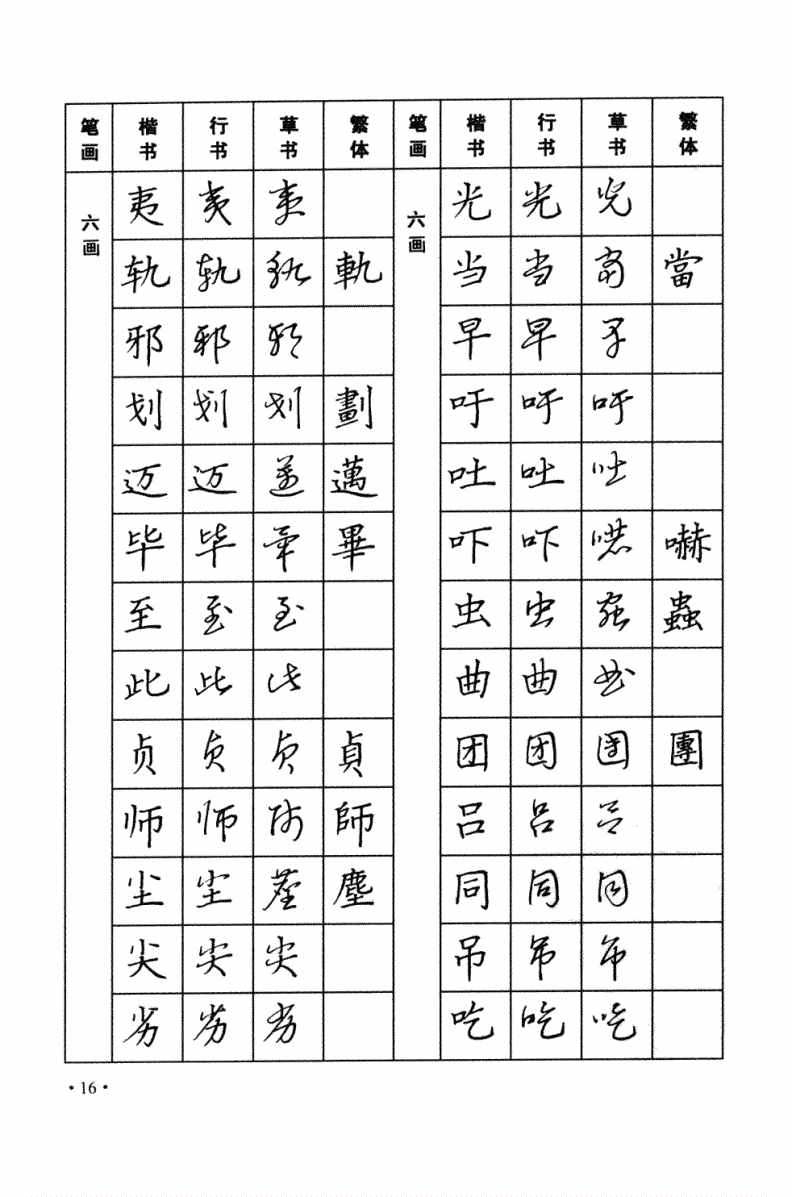 笔画 楷书 行书 草书 繁体 笔画 楷书 行书 草书 繁体
六画 夷 夷 夷 六画 光 光 光
轨 轨 轨 軌 当 当 当 當
邪 邪 邪 早 早 早
划 划 划 劃 吁 吁 吁
迈 迈 迈 邁 吐 吐 吐
毕 毕 毕 畢 吓 吓 吓 嚇
至 至 至 虫 虫 虫 蟲
此 此 此 曲 曲 曲
贞 贞 贞 貞 团 团 团 團
师 师 师 師 吕 吕 吕
尘 尘 尘 塵 同 同 同
尖 尖 尖 吊 吊 吊
劣 劣 劣 吃 吃 吃
·16·